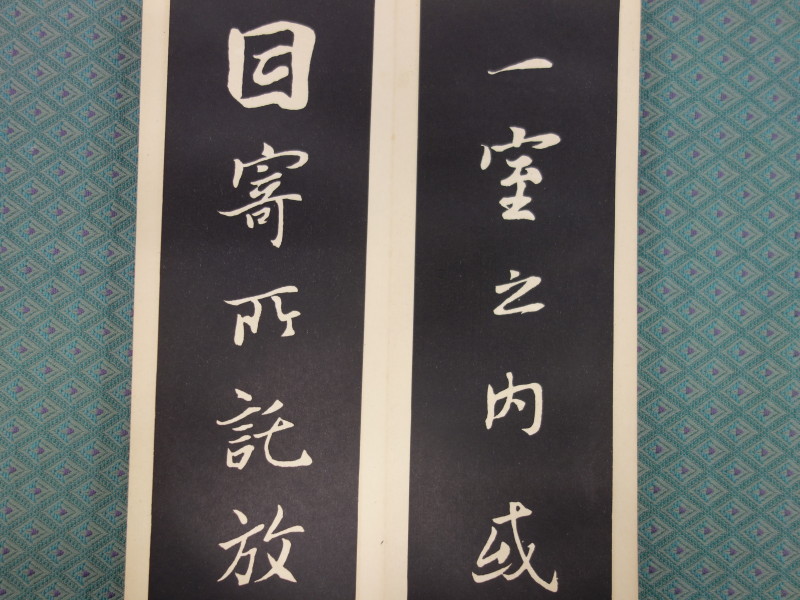 一室之内或
因寄所託放